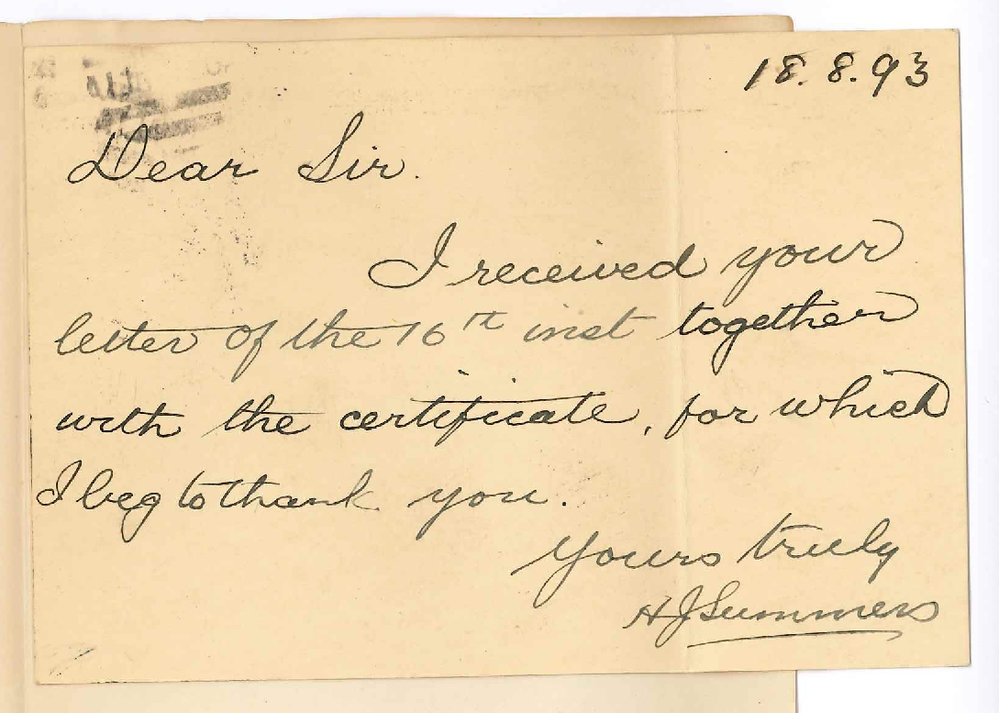 18.8.93
Dear Sir.
I received your
letter of the 16th inst together
with the certificate, for which
I beg to thank you.
Yours truly
H J Summers